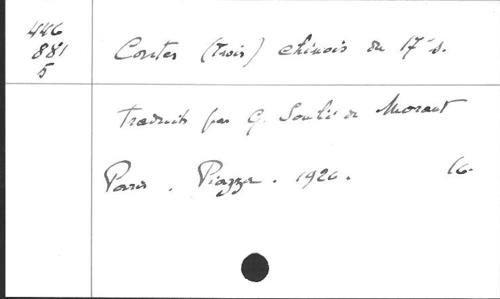 446
881
5
Contes (trois) chinois du 17e s.
Traduits par G. Soulié de Morant
Paris. Piazza. 1926. 16.